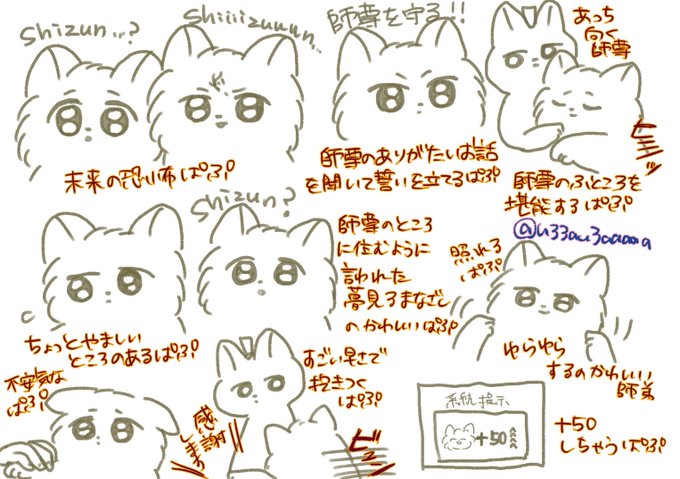 shizun...?
shiiiizuuun...
師尊を守る!!
あっち
向く
師尊
未来の恐怖ぱぷ
師尊のありがたいお話
を聞いて誓いを立てるぱぷ
ビタッ
師尊のふところを
堪能するぱぷ
@u33au3aaaaa
shizun?
師尊のところ
に住むように
言われた
夢見るまなざし
のかわいいぱぷ
照れる
ぱぷ
ちょっとやましい
ところのあるぱぷ
ゆらゆら
するのかわいい
師弟
不安気な
ぱぷ
すごい早さで
抱きつく
ぱぷ
感謝
します
ビュン
系統指示
+50
+50
しちゃうぱぷ